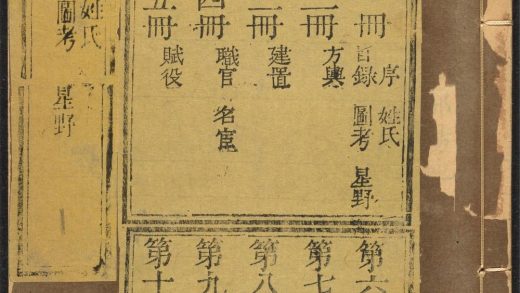 冊
序 姓氏
目録 圖考 星野
冊 方輿
冊 建置
四冊 職官 名宦
五冊 賦役
第六
第七
第八
第九
第十
姓氏
圖考 星野